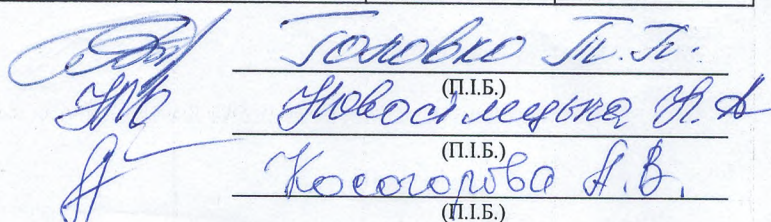 Головко Т.П.
(П.І.Б.)
Новосілецька Н.А
(П.І.Б.)
Косогорова А.В.
(П.І.Б.)